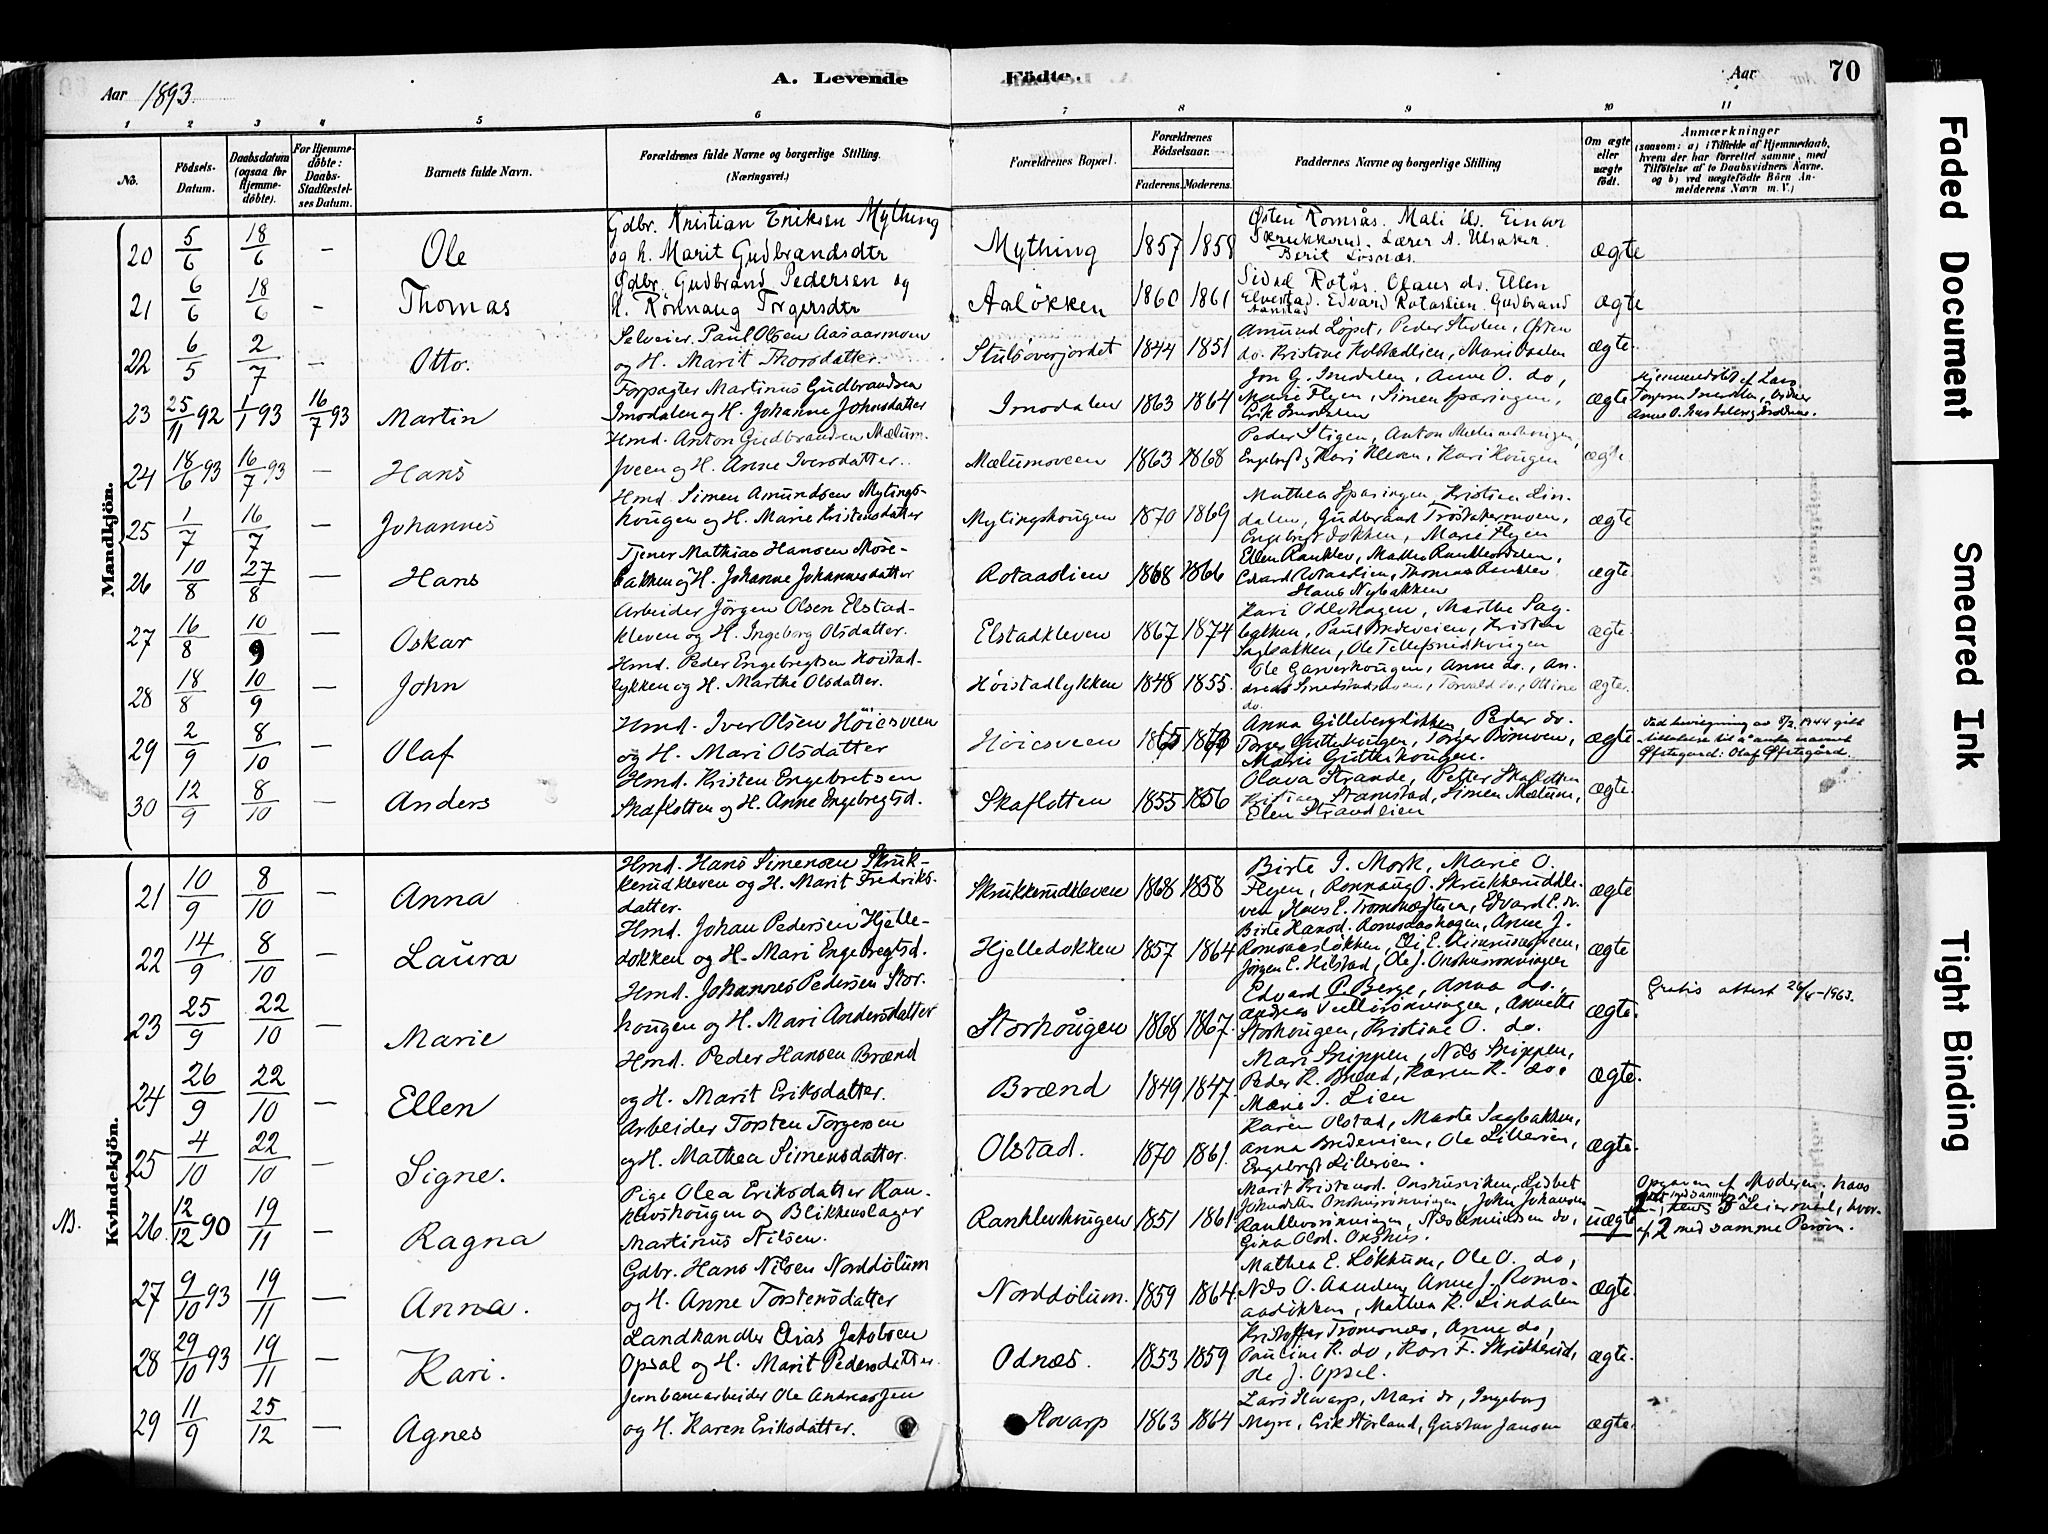 Aar 1893.
A. Levende Fødte.
Aar
70
1 2 3 4 5 6 7 8 9 10 11
No.
Födsels-Datum.
Daabsdatum (ogsaa for Hjemme-döbte).
For Hjemme-döbte: Daabs-Stadfæstel-ses Datum.
Barnets fulde Navn.
Forældrenes fulde Navne og borgerlige Stilling.
(Næringsvei.)
Forældrenes Bopæl.
Forældrenes Födselsaar.
Faderens. Moderens.
Faddernes Navne og borgerlige Stilling
Om ægte eller uægte födt.
Anmærkninger
(saasom: a) i Tilfælde af Hjemmedaab, hvem der har forrettet samme, med Tilföielse af to Daabsvidners Navne. og b) ved uægtefödte Börn An-melderens Navn m. V.)
Mandkjön.
20 5/6 18/6 – Ole
Gdbr. Kristian Eriksen Mything
og h. Marit Gudbrandsdtr
Mything 1857 1858
Østen Romsås. Mali do. Einar
Skrukkerud. Lærer A. Ulsaker.
Berit Losnæs.
ægte
21 6/6 18/6 – Thomas
Gdbr. Gudbrand Pedersen og
H. Rönnaug Torgersdtr
Aaløkken 1860 1861
Sidsel Rotås. Olaus do. Ellen
Elvestad. Edvard Rotaslien. Gudbrand
Aanstad
ægte
22 6/5 2/7 – Otto.
Selveier Paul Olsen Aasaarmoen
og H. Marit Thorsdatter.
Stulsöverjordet 1844 1851
Amund Løpet, Peder Stulen, Østen
do. Kristine Kolstadlien, Mari
ægte.
23 25/11 92 1/1 93 16/7 93 Martin
Forpagter Martinus Gudbrandsen
Imsdalen og H. Johanne Johnsdatter
Imsdalen 1863 1864
Jon G. Imsdalen, Anne O. do,
Marie Flyen, Simen Sparingen,
Erik Imsdalen
ægte
Hjemmedøbt af Lars
24 18/6 93 16/7 93 – Hans
Hmd. Anton Gudbrandsen Mælum-
sveen og H. Anne Iversdatter.
Mælumsveen 1863 1868
Peder Stigen, Anton Mælumshougen,
Engebregt og Kari Kleven, Kari Hougen
ægte
25 1/7 16/7 – Johannes
Hmd. Simen Amundsen Mytings-
hougen og H. Marie Kristensdatter
Mytingshougen 1870 1869
Mathea Sparingen, Kristian Lin-
dalen, Gudbrand Trostakermoen,
Engebregt Dokken, Marie Flyen
ægte
26 10/8 27/8 – Hans
Tjener Mathias Hansen Mose-
bakken og H. Johanne Johannesdatter
Rotaaslien 1868 1866
Ellen Ranklev, Mathea Ranklevdalen,
Edvard Rotaaslien, Thomas Ranklev
Hans Nybakken
ægte.
27 16/8 10/9 – Oskar
Arbeider Jörgen Olsen Elstad-
kleven og H. Ingeborg Olsdatter.
Elstadkleven 1867 1874
Kari Odlohagen, Marthe Sag-
bakken, Paul Bredeveien, Kristen
Sagbakken, Ole Tollefsrudhougen
ægte.
28 18/8 10/9 – John
Hmd. Peder Engebregtsen Hoistad-
lykken og H. Marthe Olsdatter.
Høistadlykken 1848 1855.
Ole Garverhougen, Anne do., An-
dreas Smedstadsveen, Torvald do., Olline
do.
ægte.
29 2/9 8/10 – Olaf
Hmd. Iver Olsen Höiesveen
og H. Mari Olsdatter
Höiesveen 1865 1863
Anna Gillebergdokken, Peder do.
Torger Guttehougen, Torger Bömoen,
Marie Guttihougen.
ægte
Ved bevilgning av 8/2 1944 gitt
tillatelse til å anta navnet
Øfstegård: Olaf Øfstegård.
30 12/9 8/10 – Anders
Hmd. Kristen Engebretsen
Skaflotten og H. Anne Engebregtsd.
Skaflotten 1855 1856
Olava Strande, Petter Skaflotten
Kristian Stamstad, Simen Mælum,
Elen Strandlien
ægte.
Kvindekjön.
21 10/9 8/10 – Anna
Hmd. Hans Simensen Skruk-
kerudkleven og H. Marit Fredriks-
datter.
Skrukkerudkleven 1868 1858
Birte I. Mork, Marie O.
Flyen, Rønnaug O. Skrukkerudkle-
ven Hans E. Tromsnæstuen, Edvard E. do.
ægte
22 14/9 8/10 – Laura
Hmd. Johan Pedersen Hjelle-
dokken og H. Mari Engebregtsd.
Hjelledokken 1857 1864
Birte Hansd. Romsdashagen, Anne J.
Romsaasløkken, Eli E.
Jørgen E. Hilstad, Ole J. Onshusrønningen
ægte
23 25/9 22/10 – Marie
Hmd. Johannes Pedersen Stor-
hougen og H. Mari Andersdatter
Storhougen 1868 1867.
Edvard P. Berge, Anna do.,
Andreas Vedlersrønningen, Annette
Storhougen, Kristine O. do.
ægte.
Gratis attest 26/4-1963.
24 26/9 22/10 – Ellen
Hmd. Peder Hansen Brænd
og H. Marit Eriksdatter.
Brænd 1849 1847.
Mari Snippen, Nils Snippen,
Peder R. Brænd, Karen R. do,
Marie J. Lien
ægte.
25 4/10 22/10 – Signe.
Arbeider Torsten Torgersen
og H. Mathea Simensdatter.
Olstad. 1870 1861.
Karen Olstad, Marte Sagbakken,
Anna Bredeveien, Ole Lillerøen,
Engebregt Lillerøen.
ægte.
NB. 26. 12/12 90 19/11 – Ragna
Pige Olea Eriksdatter Ran-
klevshougen og Blikkenslager
Martinus Nilsen.
Ranklevhougen 1851 1861.
Marit Kristensd. Onshusviken, Lisbet
Johnsdatter Onshusrønningen, John Johansen
Ranklevsrønningen, Nils Amundsen do,
Gina Olsd. Onshus.
uægte
Opgaven af Moderen, hans
Leiermaal, hvor-
af 2 med samme Person.
27 9/10 93 19/11 – Anna.
Gdbr. Hans Nilsen Norddölum
og H. Anne Torstensdatter
Norddölum. 1859 1864.
Mathea E. Løkhum, Ole O. do,
Nils O. Aanden, Anne J. Roms-
aasløkken, Mathea K. Lindalen
ægte.
28 29/10 93 19/11 – Kari.
Landhandler Elias Jakobsen
Opsal og H. Marit Pedersdatter.
Odnæs. 1853 1859
Kristoffer Tromsnæs, Anne do,
Pauline K. do, Kari F. Skrukkerud,
Ole J. Opsal.
ægte.
29 11/9 25/12 – Agnes
Jernbanearbeider Ole Andreassen
og H. Karen Eriksdatter.
Skvarp 1863 1864
Lars Skvarp, Mari do, Ingeborg
Myre, Erik Störland, Gustav Jansen
ægte.
Faded Document
Smeared Ink
Tight Binding